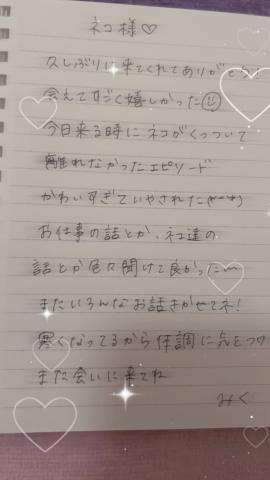 ネコ様♡
久しぶりに来てくれてありがとう!
会えてすごく嬉しかった☺
今日来る時にネコがくっついて
離れなかったエピソード
かわいすぎていやされた(*˘︶˘*)
お仕事の話とか、ネコ達の
話とか色々聞けて良かった〜
またいろんなお話きかせてネ!
寒くなってるから体調に気をつけ
また会いに来てね
みく